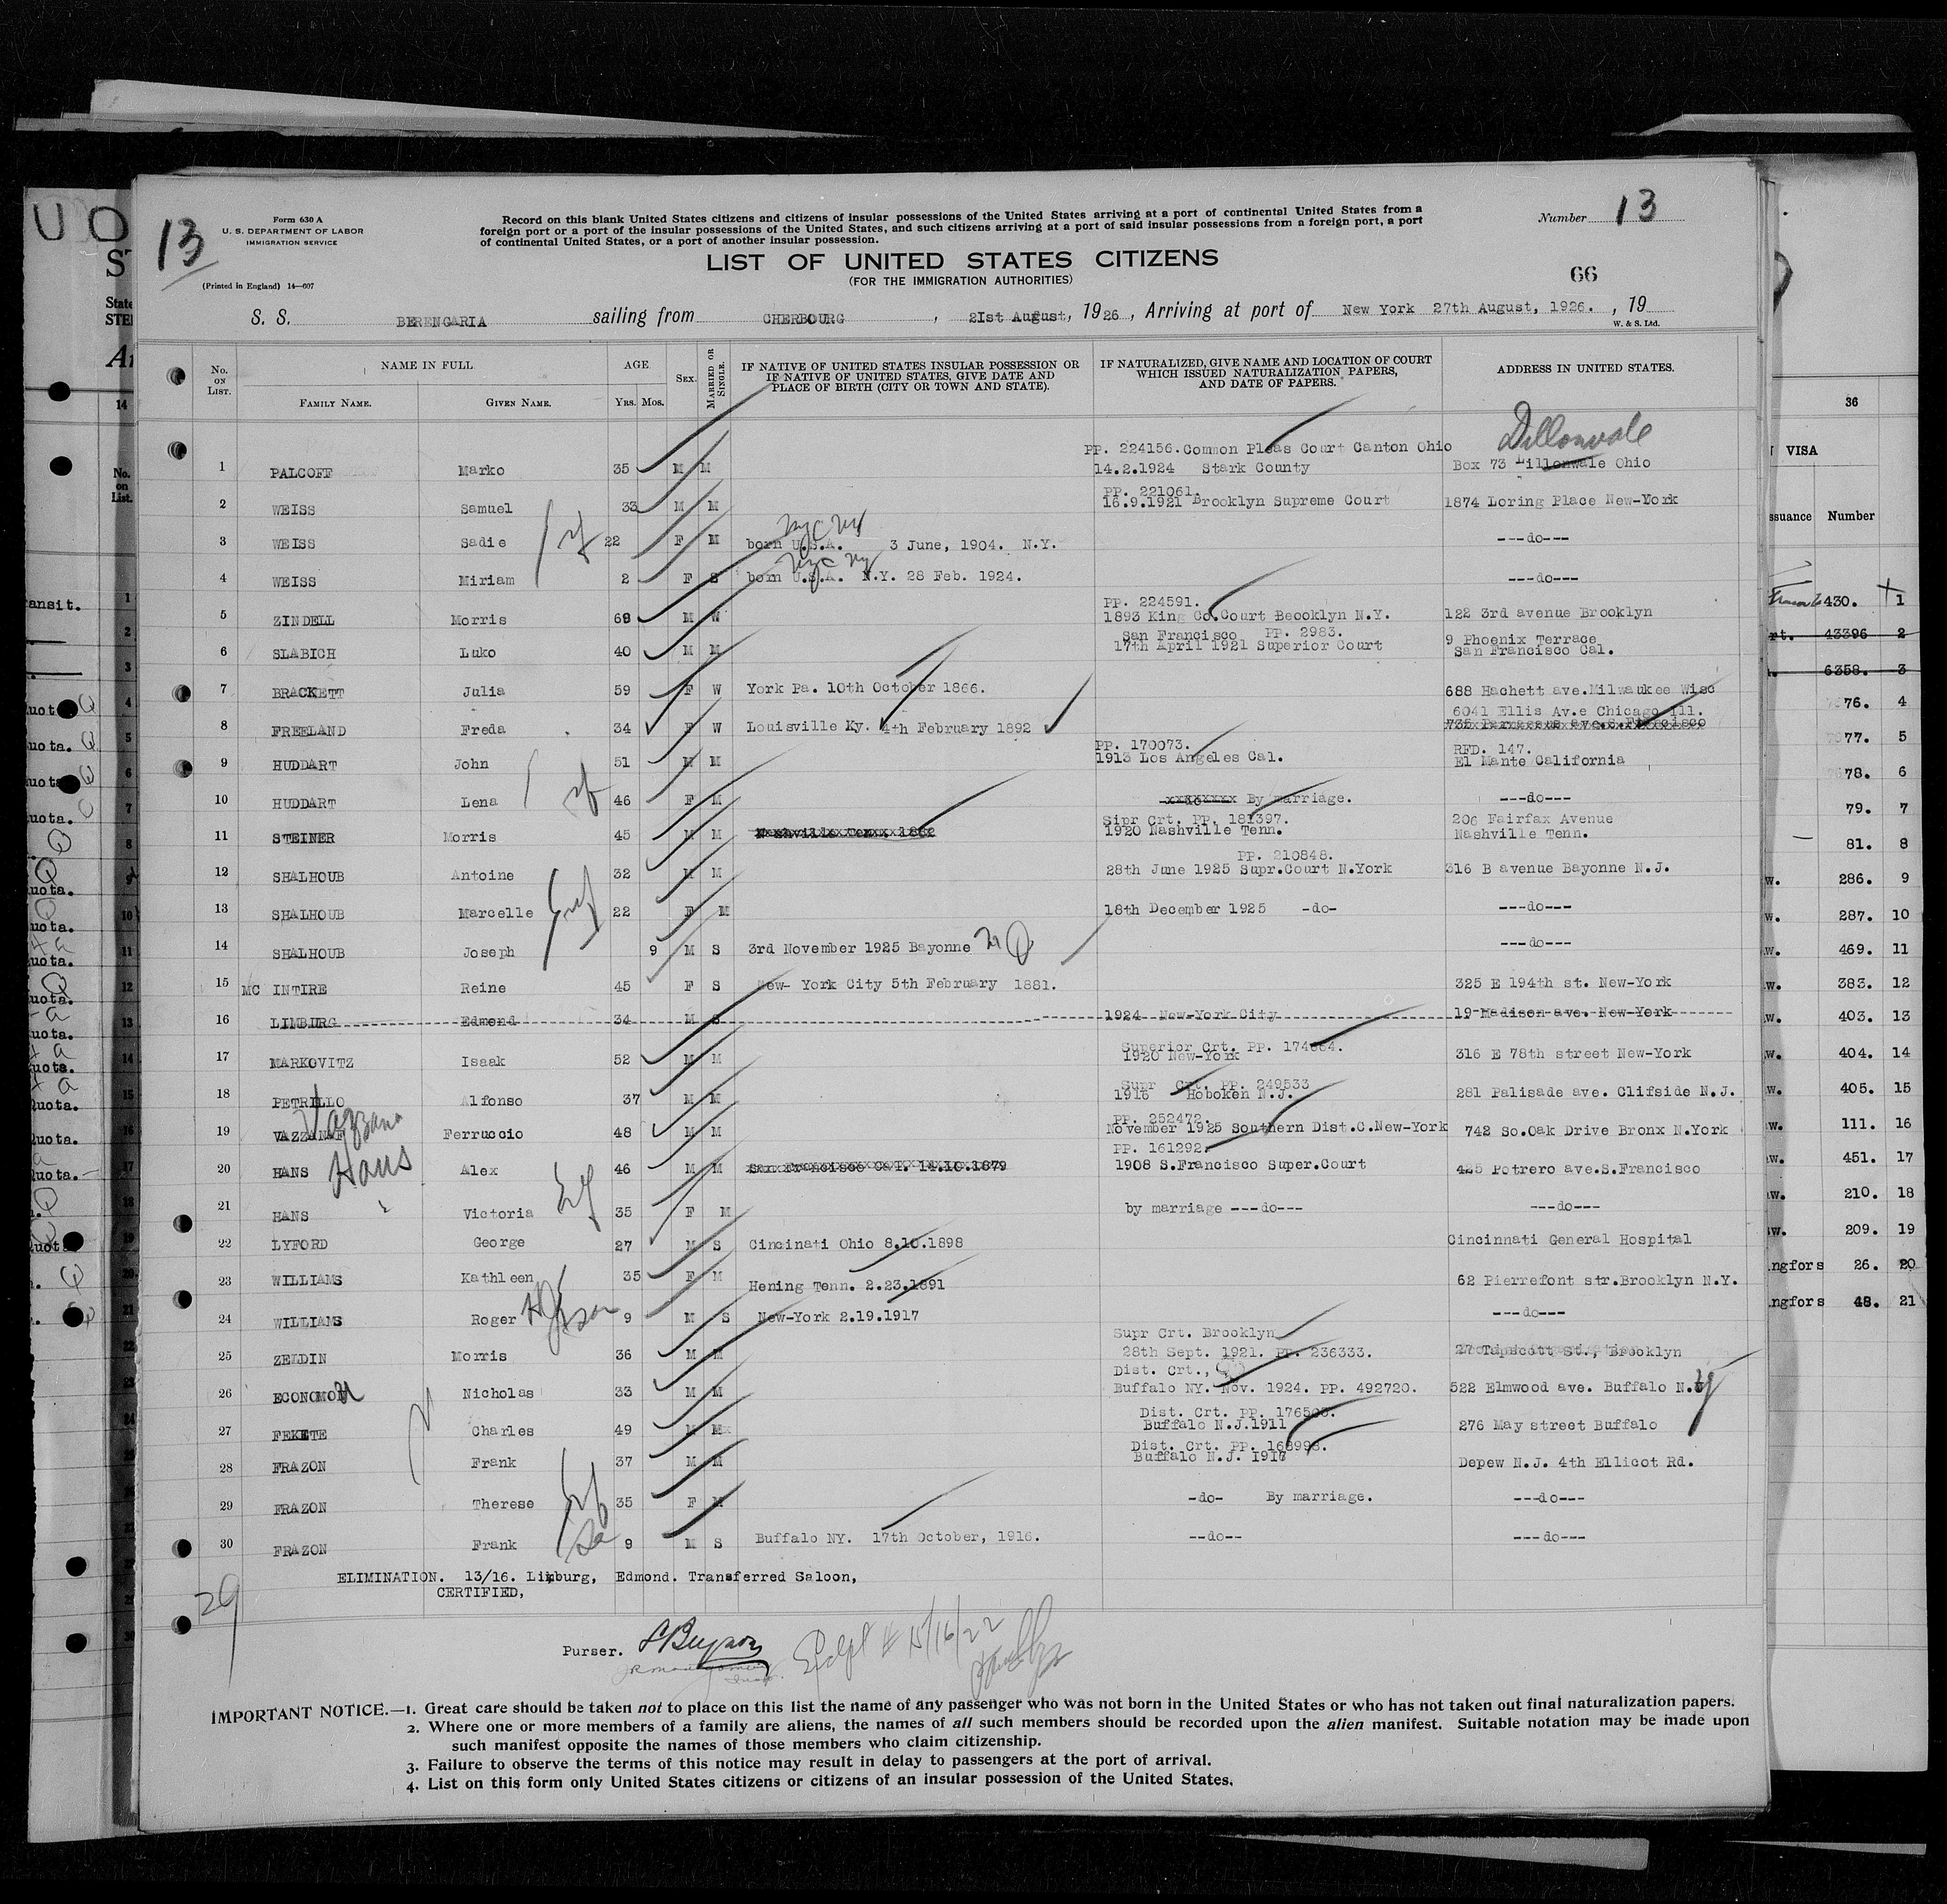 13
Form 630 A
U. S. DEPARTMENT OF LABOR
IMMIGRATION SERVICE
(Printed in England) 14—607
Record on this blank United States citizens and citizens of insular possessions of the United States arriving at a port of continental United States from a
foreign port or a port of the insular possessions of the United States, and such citizens arriving at a port of said insular possessions from a foreign port, a port
of continental United States, or a port of another insular possession.
Number 13
LIST OF UNITED STATES CITIZENS
(FOR THE IMMIGRATION AUTHORITIES)
66
S. S. BERENGARIA sailing from CHERBOURG, 21st August, 1926, Arriving at port of New York 27th August, 1926. , 19
W. & S. Ltd.
No. ON LIST. NAME IN FULL AGE SEX. MARRIED OR SINGLE. IF NATIVE OF UNITED STATES INSULAR POSSESSION OR IF NATIVE OF UNITED STATES, GIVE DATE AND PLACE OF BIRTH (CITY OR TOWN AND STATE). IF NATURALIZED, GIVE NAME AND LOCATION OF COURT WHICH ISSUED NATURALIZATION PAPERS, AND DATE OF PAPERS. ADDRESS IN UNITED STATES.
FAMILY NAME. GIVEN NAME. YRS. MOS.
Dillonvale
PP. 224156. Common Pleas Court Canton Ohio
1 PALCOFF Marko 35 M M 14.2.1924 Stark County Box 73 Dillonwale Ohio
PP. 221061.
2 WEISS Samuel 33 M M 16.9.1921 Brooklyn Supreme Court 1874 Loring Place New-York
NYC NY
3 WEISS Sadie 22 F M born U.S.A. 3 June, 1904. N.Y. ---do---
NYC NY
4 WEISS Miriam 2 F S born U.S.A. N.Y. 28 Feb. 1924. ---do---
PP. 224591.
5 ZINDELL Morris 68 M W 1893 King Co.Court Beooklyn N.Y. 122 3rd avenue Brooklyn
San Francisco PP. 2983. 9 Phoenix Terrace
6 SLABICH Luko 40 M M 17th April 1921 Superior Court San Francisco Cal.
7 BRACKETT Julia 59 F W York Pa. 10th October 1866. 688 Hachett ave.Milwaukee Wisc
6041 Ellis Av.e Chicago Ill.
8 FREELAND Freda 34 F W Louisville Ky. 4th February 1892
PP. 170073. RFD. 147.
9 HUDDART John 51 M M 1913 Los Angeles Cal. El Mante California
10 HUDDART Lena 46 F M By marriage. ---do---
Sipr Crt. PP. 181397. 206 Fairfax Avenue
11 STEINER Morris 45 M M Nashville Tenn. 1882 1920 Nashville Tenn. Nashville Tenn.
PP. 210848.
12 SHALHOUB Antoine 32 M M 28th June 1925 Supr.Court N.York 316 B avenue Bayonne N.J.
13 SHALHOUB Marcelle 22 F M 18th December 1925 -do- ---do---
14 SHALHOUB Joseph 9 M S 3rd November 1925 Bayonne ---do---
15 MC INTIRE Reine 45 F S New- York City 5th February 1881. 325 E 194th st. New-York
16 LIMBURG Edmond 34 M S 1924 New-York City 19 Madison ave. New-York
Superior Crt. PP. 174664.
17 MARKOVITZ Isaak 52 M M 1920 New-York 316 E 78th street New-York
Supr Crt. PP. 249533
18 PETRILLO Alfonso 37 M M 1916 Hoboken N.J. 281 Palisade ave. Clifside N.J.
Vazzana PP. 252472.
19 VAZZANAF Ferruccio 48 M M November 1925 Southern Dist.C.New-York 742 So.Oak Drive Bronx N.York
Haus PP. 161292.
20 HANS Alex 46 M M San Francisco Cal. 14.10.1879 1908 S.Francisco Super.Court 425 Potrero ave.S.Francisco
21 HANS Victoria 35 F M by marriage ---do--- ---do---
22 LYFORD George 27 M S Cincinati Ohio 8.10.1898 Cincinnati General Hospital
23 WILLIAMS Kathleen 35 F M Hening Tenn. 2.23.1891 62 Pierrefont str.Brooklyn N.Y.
24 WILLIAMS Roger 9 M S New-York 2.19.1917 ---do---
Supr Crt. Brooklyn
25 ZELDIN Morris 36 M M 28th Sept. 1921. PP. 236333. 27 Tapscott St., Brooklyn
Dist. Crt.,
26 ECONOMOU Nicholas 33 M M Buffalo NY. Nov. 1924. PP. 492720. 522 Elmwood ave. Buffalo N.Y
Dist. Crt. PP. 176503.
27 FEKETE Charles 49 M M Buffalo N.J.1911 276 May street Buffalo
Dist. Crt. PP. 168998.
28 FRAZON Frank 37 M M Buffalo N.J. 1916 Depew N.J. 4th Ellicot Rd.
29 FRAZON Therese 35 F M -do- By marriage. ---do---
30 FRAZON Frank 9 M S Buffalo NY. 17th October, 1916. --do-- ---do---
ELIMINATION. 13/16. Limburg, Edmond. Transferred Saloon,
CERTIFIED,
29
Purser.
15/16/22
IMPORTANT NOTICE.—1. Great care should be taken not to place on this list the name of any passenger who was not born in the United States or who has not taken out final naturalization papers.
2. Where one or more members of a family are aliens, the names of all such members should be recorded upon the alien manifest. Suitable notation may be made upon
such manifest opposite the names of those members who claim citizenship.
3. Failure to observe the terms of this notice may result in delay to passengers at the port of arrival.
4. List on this form only United States citizens or citizens of an insular possession of the United States.
36
VISA
Number
430. 1
43396 2
6358. 3
76. 4
77. 5
78. 6
79. 7
81. 8
286. 9
287. 10
469. 11
383. 12
403. 13
404. 14
405. 15
111. 16
451. 17
210. 18
209. 19
26. 20
48. 21